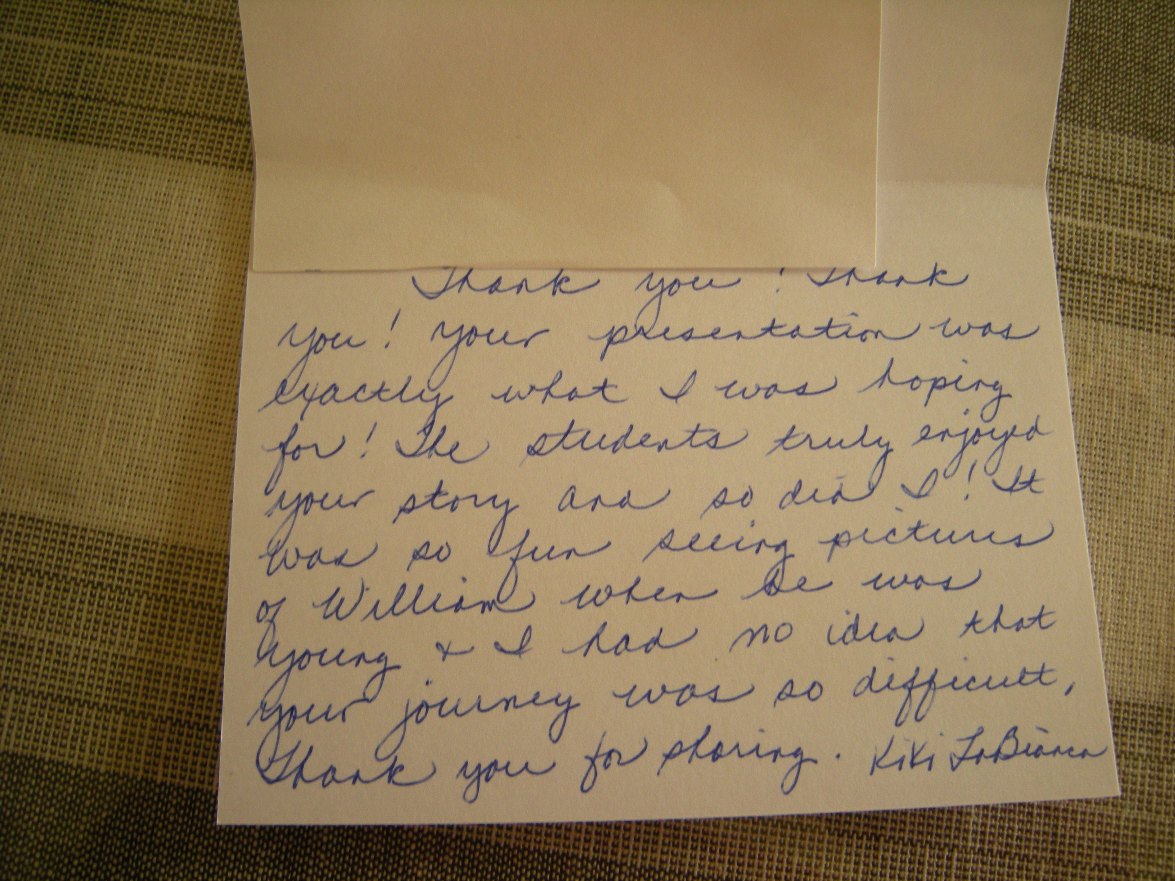 Thank you! Thank
you! Your presentation was
exactly what I was hoping
for! The students truly enjoyed
your story and so did I! It
was so fun seeing pictures
of William when he was
young + I had no idea that
your journey was so difficult,
Thank you for sharing. KiKi LaBianca